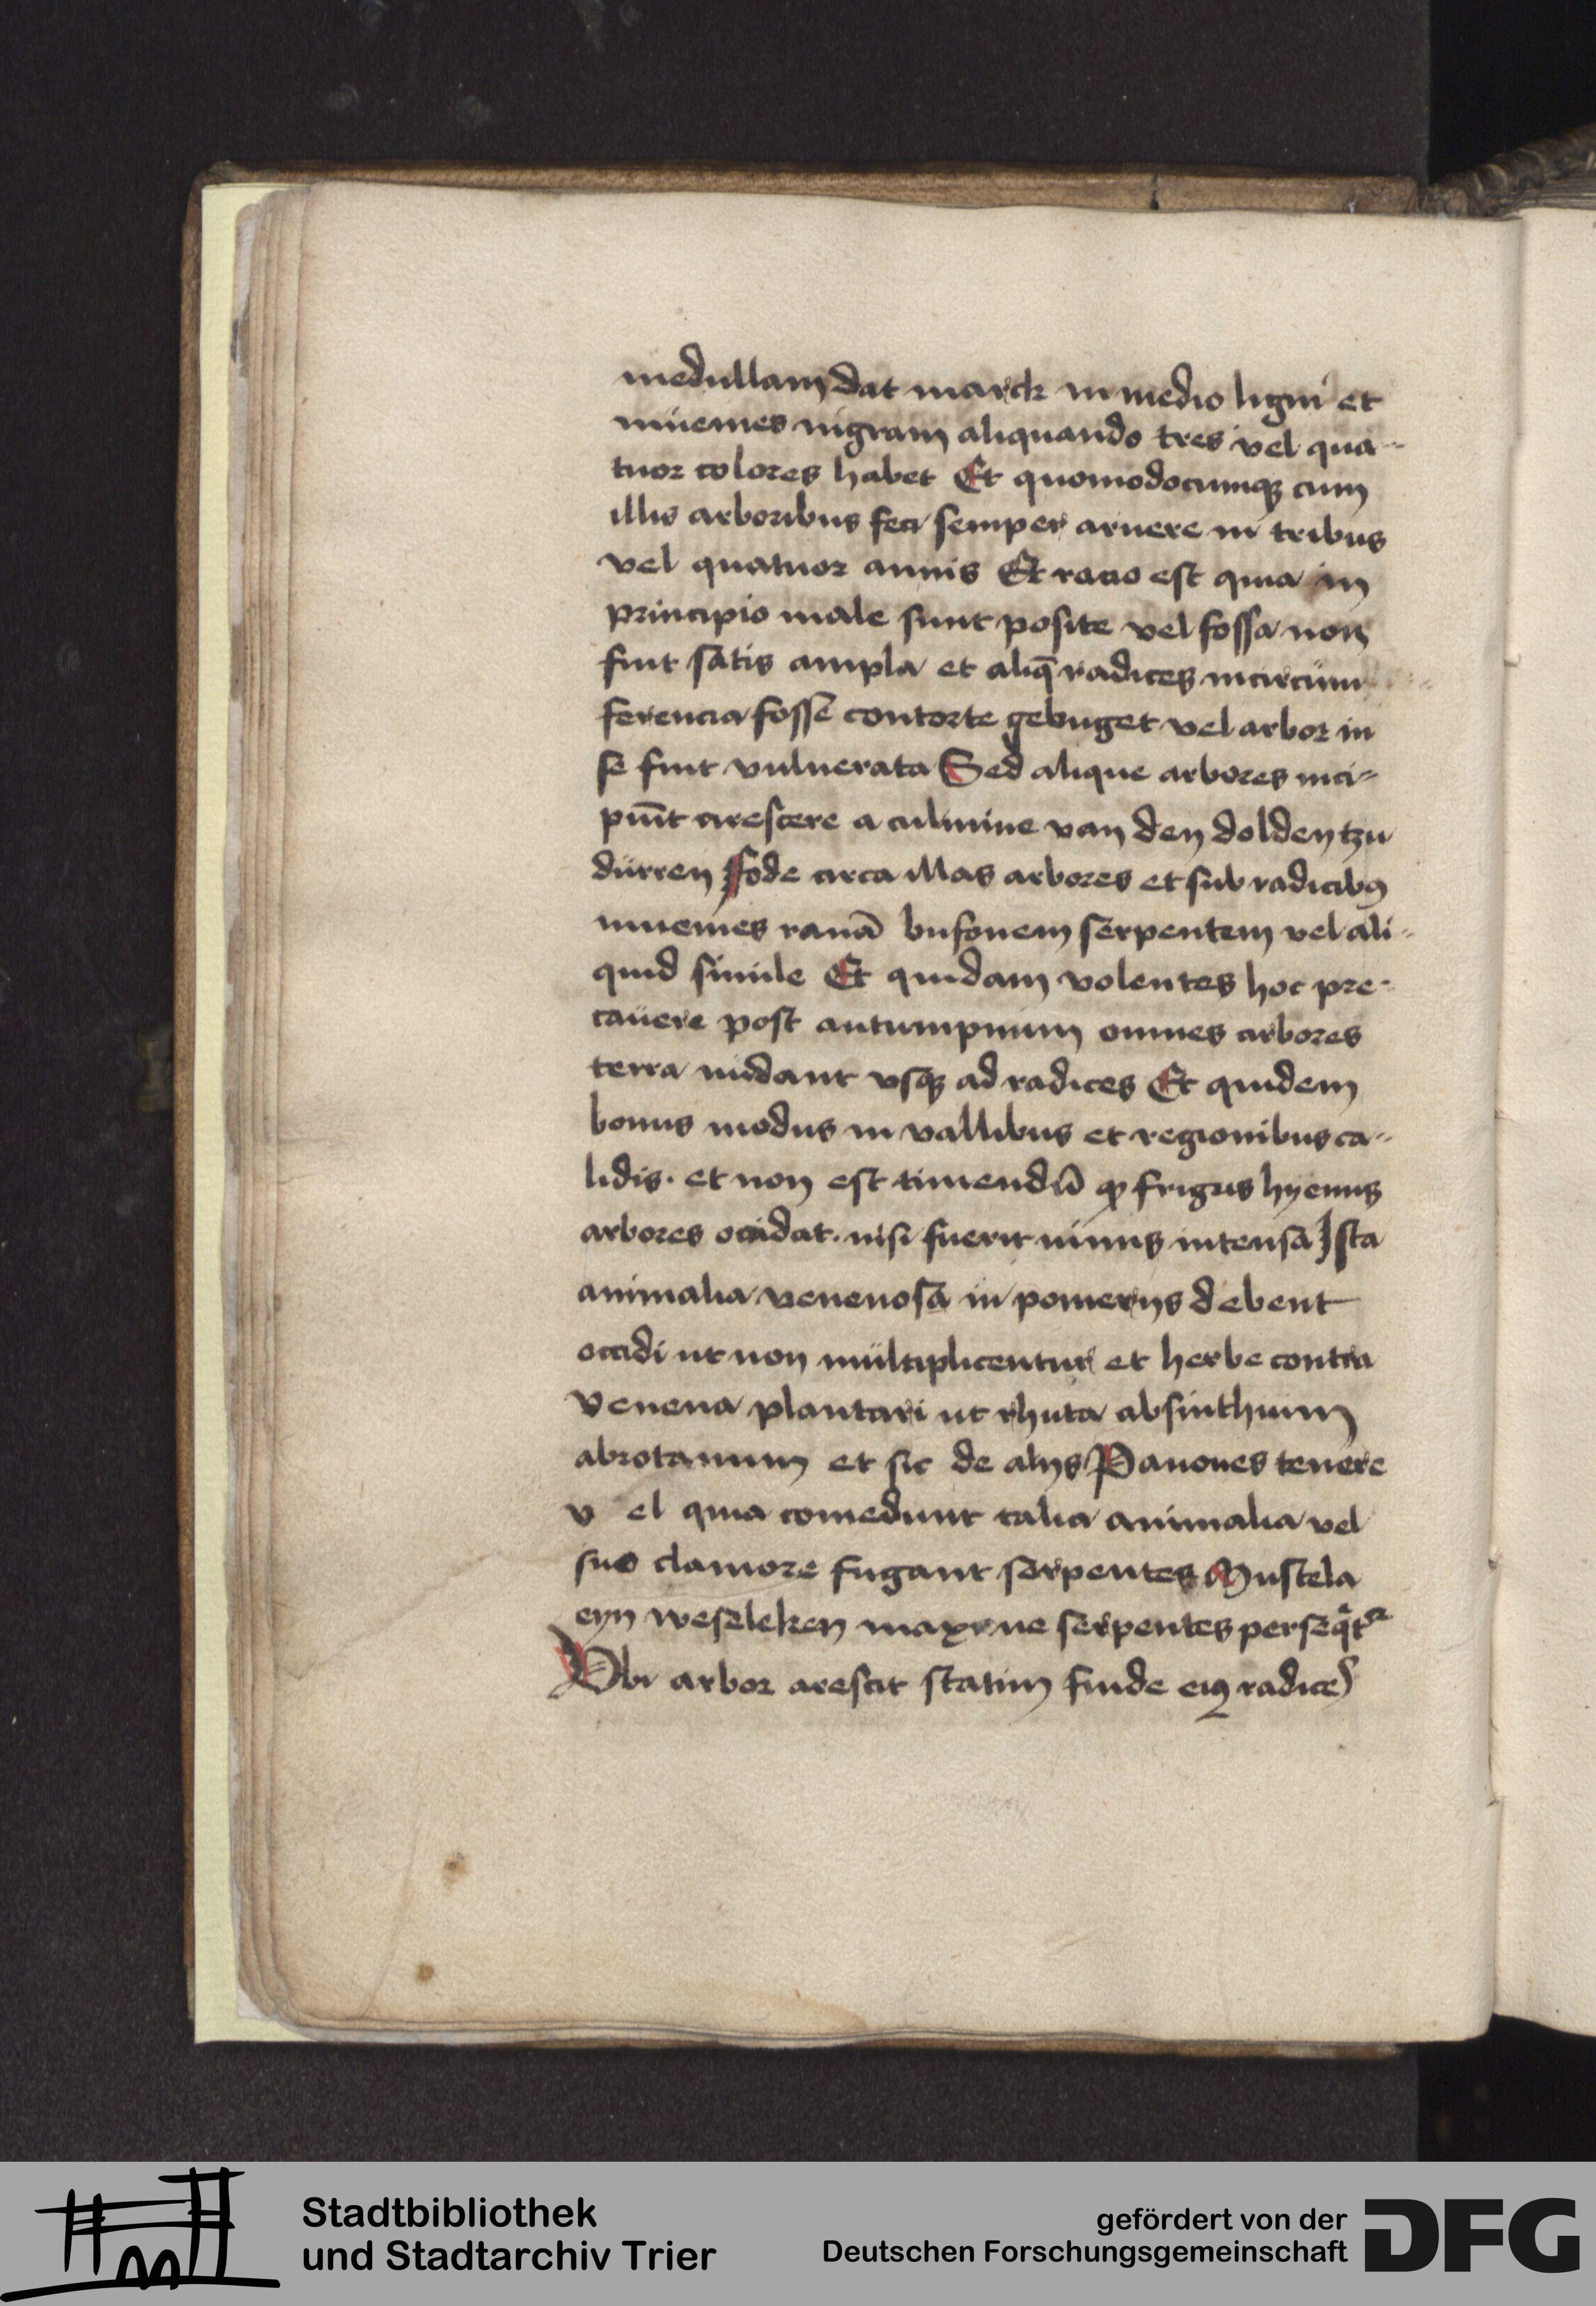 medullam dat marck in medio ligni et
inuenies nigram aliquando tres vel qua-
tuor colores habet Et quomodocumqꝫ cum
illis arboribus feci semper aruere in tribus
vel quatuor annis Et racio est quia in
principio male sunt posite vel fossa non
fuit satis ampla et aliq̄ radices in circum
ferencia fosse contorte gebuget vel arbor in
se fuit vulnerata Sed alique arbores inci-
piūt arescere a culmine van den dolden tzu
dürren Fode circa illas arbores et sub radicibꝯ
inuenies ranā bufonem serpentem vel ali-
quid simile Et quidam volentes hoc pre-
cauere post autumpnum omnes arbores
terra nudant vsqꝫ ad radices Et quidem
bonus modus in vallibus et regionibus ca-
lidis. et non est timendū ꝙ frigus hyemis
arbores occidat. nisi fuerit nimis intensa Ista
animalia venenosa in pomerijs debent
occidi ut non multiplicentur et herbe contra
venena plantari ut rhuta absinthium
abrotanum et sic de alijs Pauones tenere
v el quia comedunt talia animalia vel
suo clamore fugant serpentes Mustela
eyn weszleken maxime serpentes perseqͥtᷣ
Vbi arbor arescit statim finde eiꝯ radicē
Stadtbibliothek
und Stadtarchiv Trier
gefördert von der
Deutschen Forschungsgemeinschaft
DFG